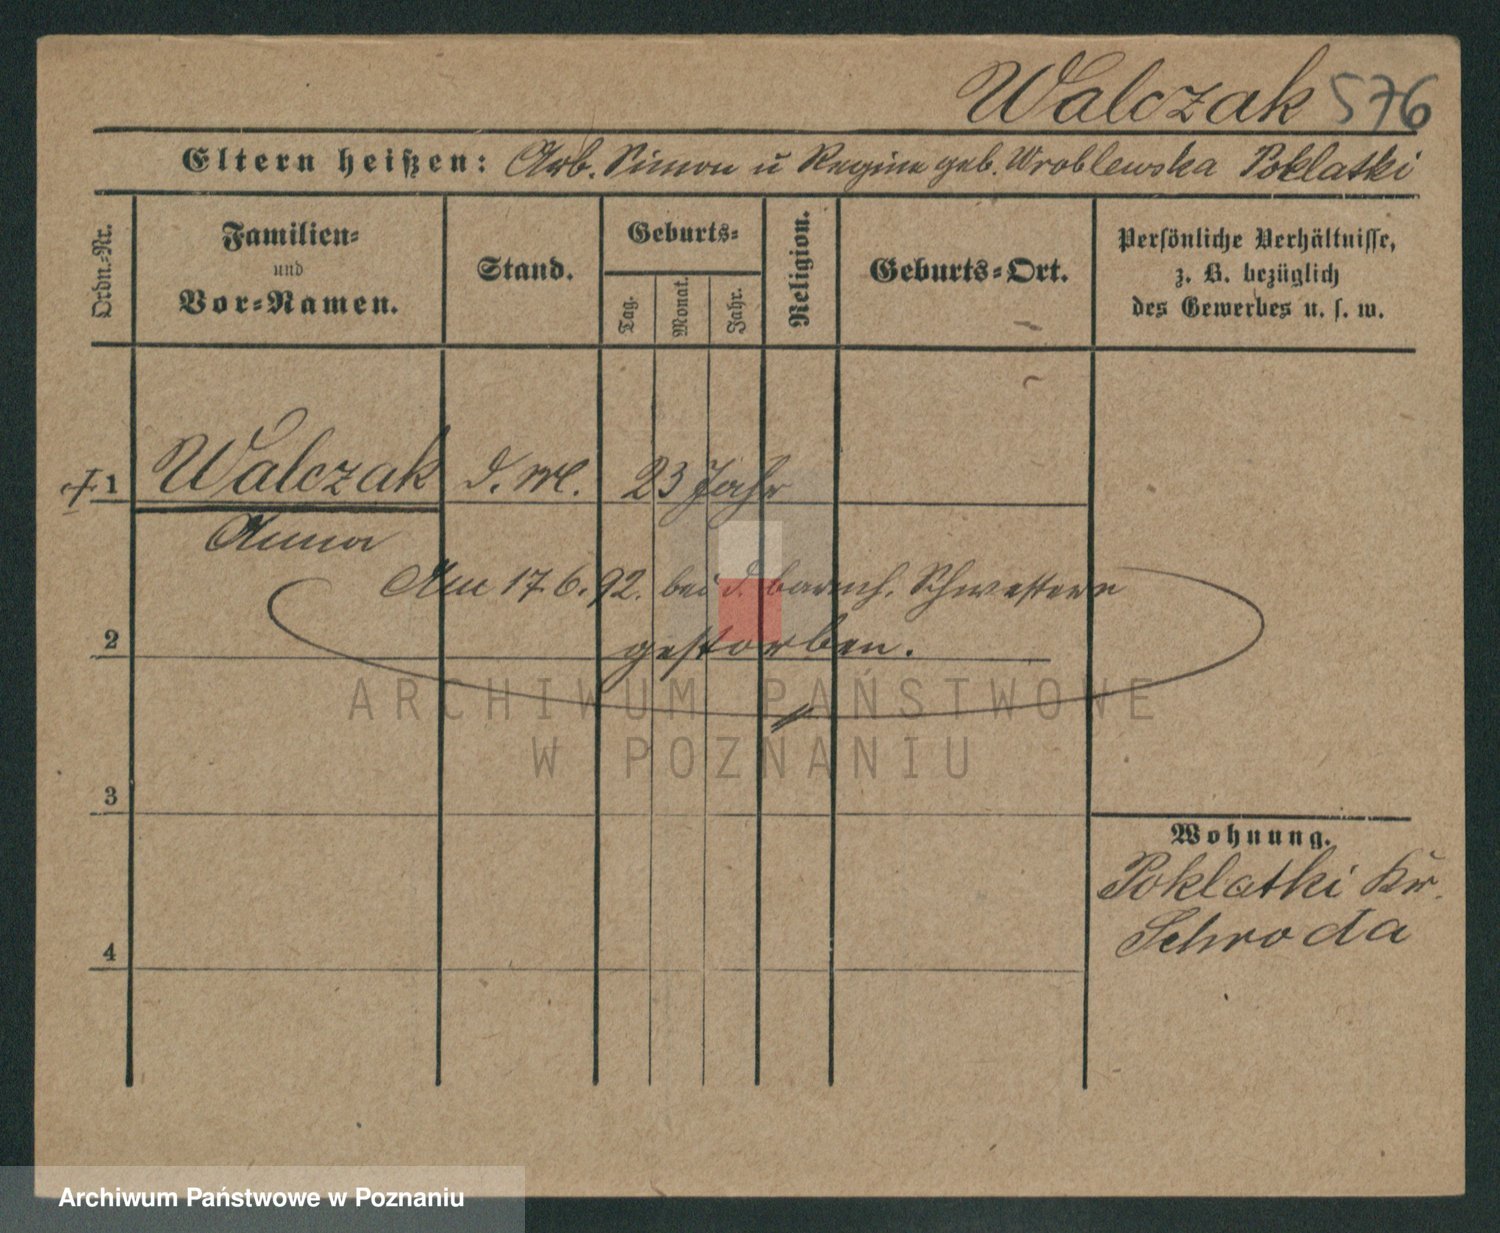 Walczak 576
Eltern heißen: Arb. Simon u Regine geb. Wroblewska Poklatki
Ordn.-Nr.
Familien-
und
Vor-Namen.
Stand.
Geburts-
Tag.
Monat.
Jahr.
Religion.
Geburts-Ort.
Persönliche Verhältnisse,
z. B. bezüglich
des Gewerbes u. s. w.
1 Walczak d. M. 23 Jahr
Anna
Am 17.6.92. bei d. barmh. Schwestern
2 gestorben.
ARCHIWUM PAŃSTWOWE
W POZNANIU
3
Wohnung.
Poklatki Kr.
Schroda
4
Archiwum Państwowe w Poznaniu